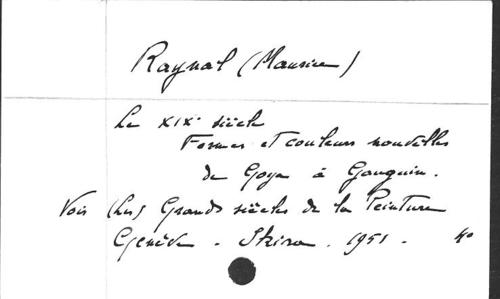 Raynal (Maurice)
Le XIXe siècle
Formes et couleurs nouvelles
de Goya à Gauguin.
Voir (Les) Grands siècles de la Peinture
Genève - Skira - 1951 - 4o